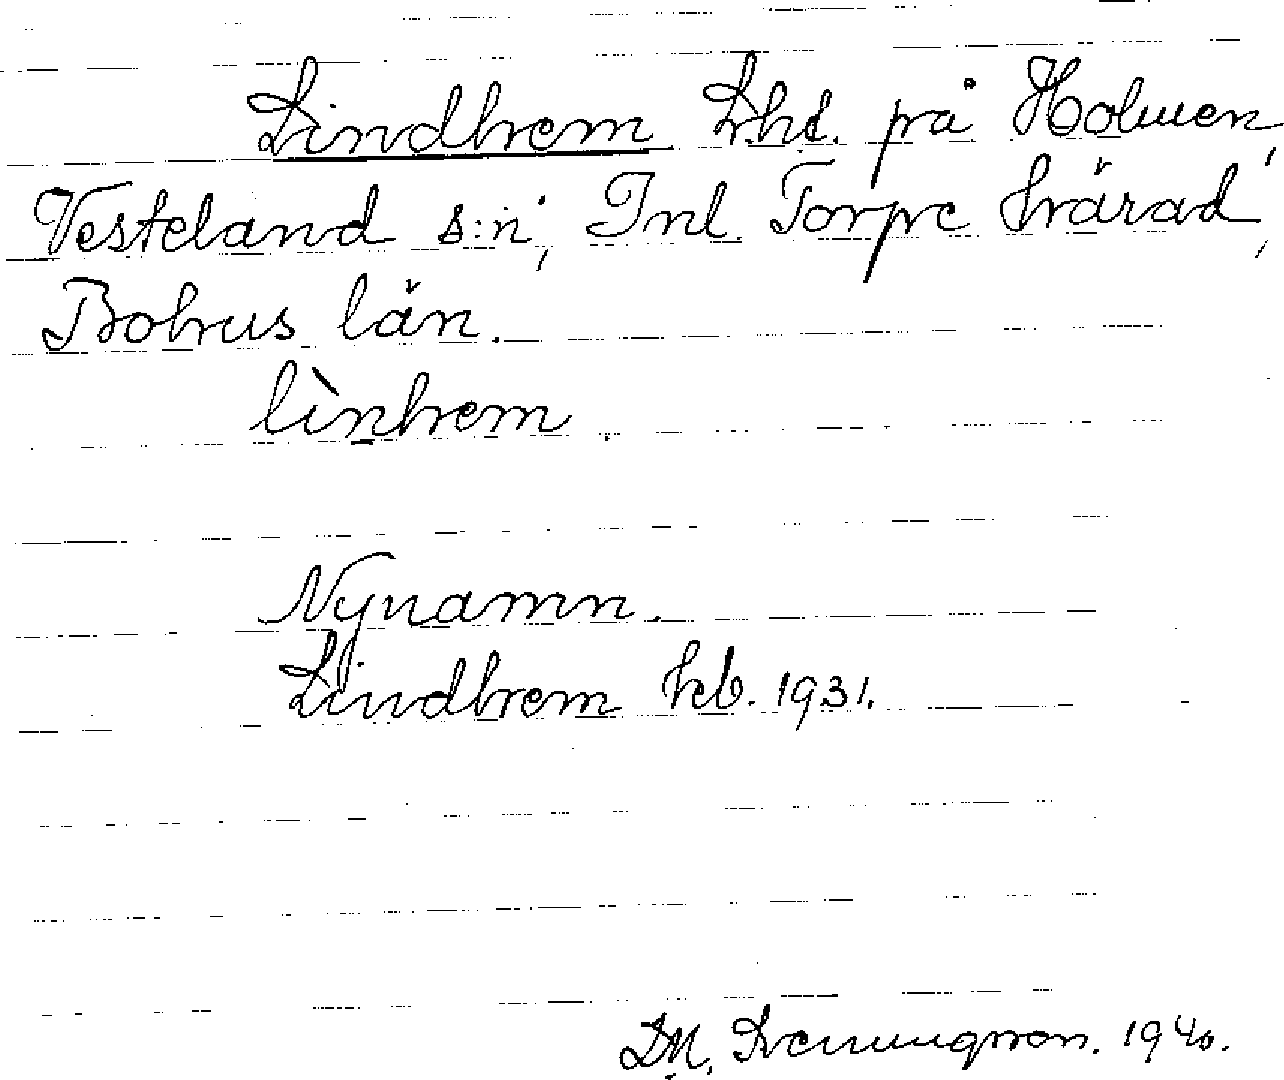 Lindhem Lht. på Holmen,
Vesteland s:n, Inl. Torpe härad,
Bohus län.
lìnhem
Nynamn.
Lindhem hb. 1931.
1940.